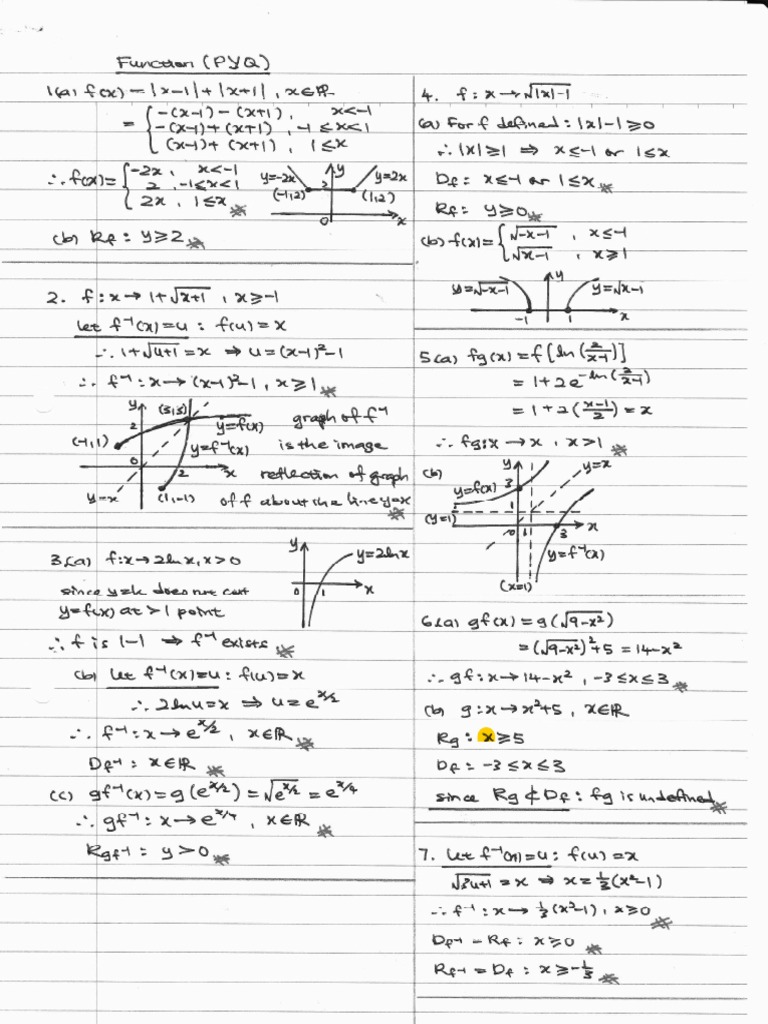 Function (PYQ)
1(a) f(x) = |x-1| + |x+1| , x∈ℝ
= { -(x-1) - (x+1) , x<-1
-(x-1) + (x+1) , -1≤x<1
(x-1) + (x+1) , 1≤x
∴ f(x) = { -2x , x<-1
2 , -1≤x<1
2x , 1≤x
y=-2x
y
y=2x
(-1,2)
2
(1,2)
0
x
(b) Rf : y≥2
2. f : x → 1+√(x+1) , x≥-1
let f⁻¹(x)=u : f(u) = x
∴ 1+√(u+1) = x ⇒ u = (x-1)²-1
∴ f⁻¹ : x → (x-1)²-1 , x≥1
y
(3,3)
2
y=f(x)
(-1,1)
y=f⁻¹(x)
0
2
x
y=x
(1,-1)
graph of f⁻¹
is the image
reflection of graph
of f about the line y=x
3.(a) f:x→2lnx, x>0
since y=k does not cut
y=f(x) at >1 point
y
y=2lnx
0
1
x
∴ f is 1-1 ⇒ f⁻¹ exists
(b) let f⁻¹(x)=u : f(u) = x
∴ 2lnu = x ⇒ u = e^(x/2)
∴ f⁻¹ : x → e^(x/2) , x∈ℝ
Df⁻¹ : x∈ℝ
(c) gf⁻¹(x) = g(e^(x/2)) = √(e^(x/2)) = e^(x/4)
∴ gf⁻¹ : x → e^(x/4) , x∈ℝ
Rgf⁻¹ : y>0
4. f : x → √(|x|-1)
(a) For f defined : |x|-1≥0
∴ |x|≥1 ⇒ x≤-1 or 1≤x
Df : x≤-1 or 1≤x
Rf : y≥0
(b) f(x) = { √(-x-1) , x≤-1
√(x-1) , x≥1
y=√(-x-1)
y
y=√(x-1)
-1
1
x
5.(a) fg(x) = f[ln(2/(x-1))]
= 1+2e^(-ln(2/(x-1)))
= 1+2((x-1)/2) = x
∴ fg:x → x , x>1
(b)
y
y=x
y=f(x)
3
(y=1)
1
0
1
3
x
y=f⁻¹(x)
(x=1)
6.(a) gf(x) = g(√(9-x²))
= (√(9-x²))²+5 = 14-x²
∴ gf : x → 14-x² , -3≤x≤3
(b) g : x → x²+5 , x∈ℝ
Rg : x≥5
Df : -3≤x≤3
since Rg ⊄ Df : fg is undefined
7. Let f⁻¹(x)=u : f(u) = x
√(3u+1) = x ⇒ x = ⅓(x²-1)
∴ f⁻¹ : x → ⅓(x²-1) , x≥0
Df⁻¹ = Rf : x≥0
Rf⁻¹ = Df : x≥-⅓